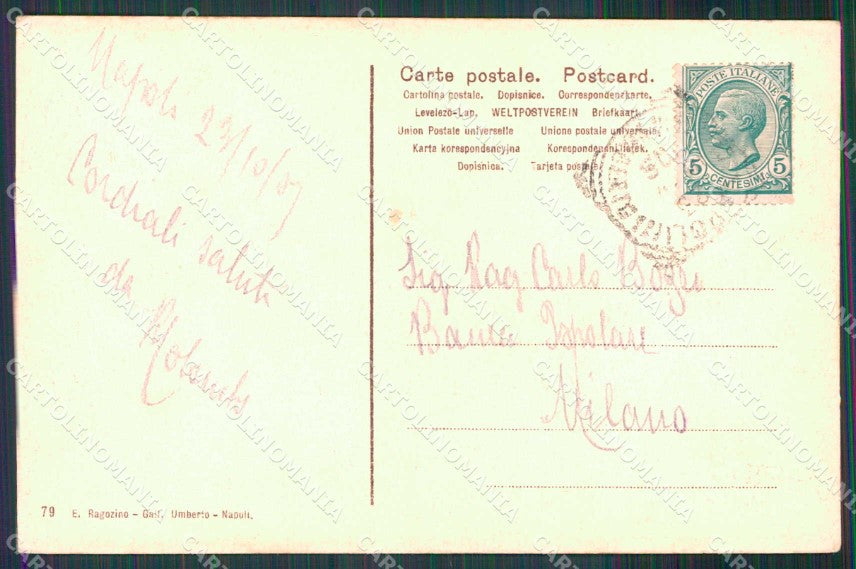 Napoli 23/10/07
Cordiali saluti
da
Carte postale. Postcard.
Cartolina postale. Dopisnice. Correspondenckarte.
Levelező-Lap. WELTPOSTVEREIN Briefkaart.
Union Postale universelle Unione postale universale
Karta korespondencyjna Korespondenční lístek.
Dopisnica. Tarjeta postal
POSTE ITALIANE
5 5
CENTESIMI
Sig Rag Carlo Bozzi
Banca Popolare
Milano
79 E. Ragozino - Gall. Umberto - Napoli.
CARTOLINOMANIA